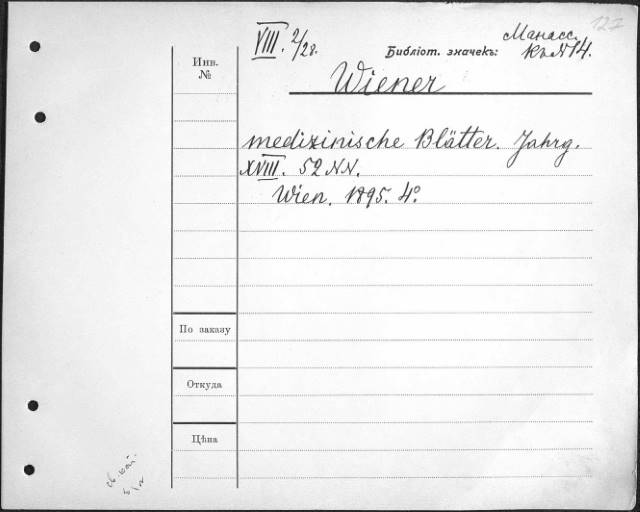 127
VIII. 2/28.
Библіот. значекъ:
Манасс.
Къ N 14.
Инв.
№
Wiener
medizinische Blätter. Jahrg.
XVIII. 52 NN.
Wien. 1895. 4°
По заказу
Откуда
Цѣна